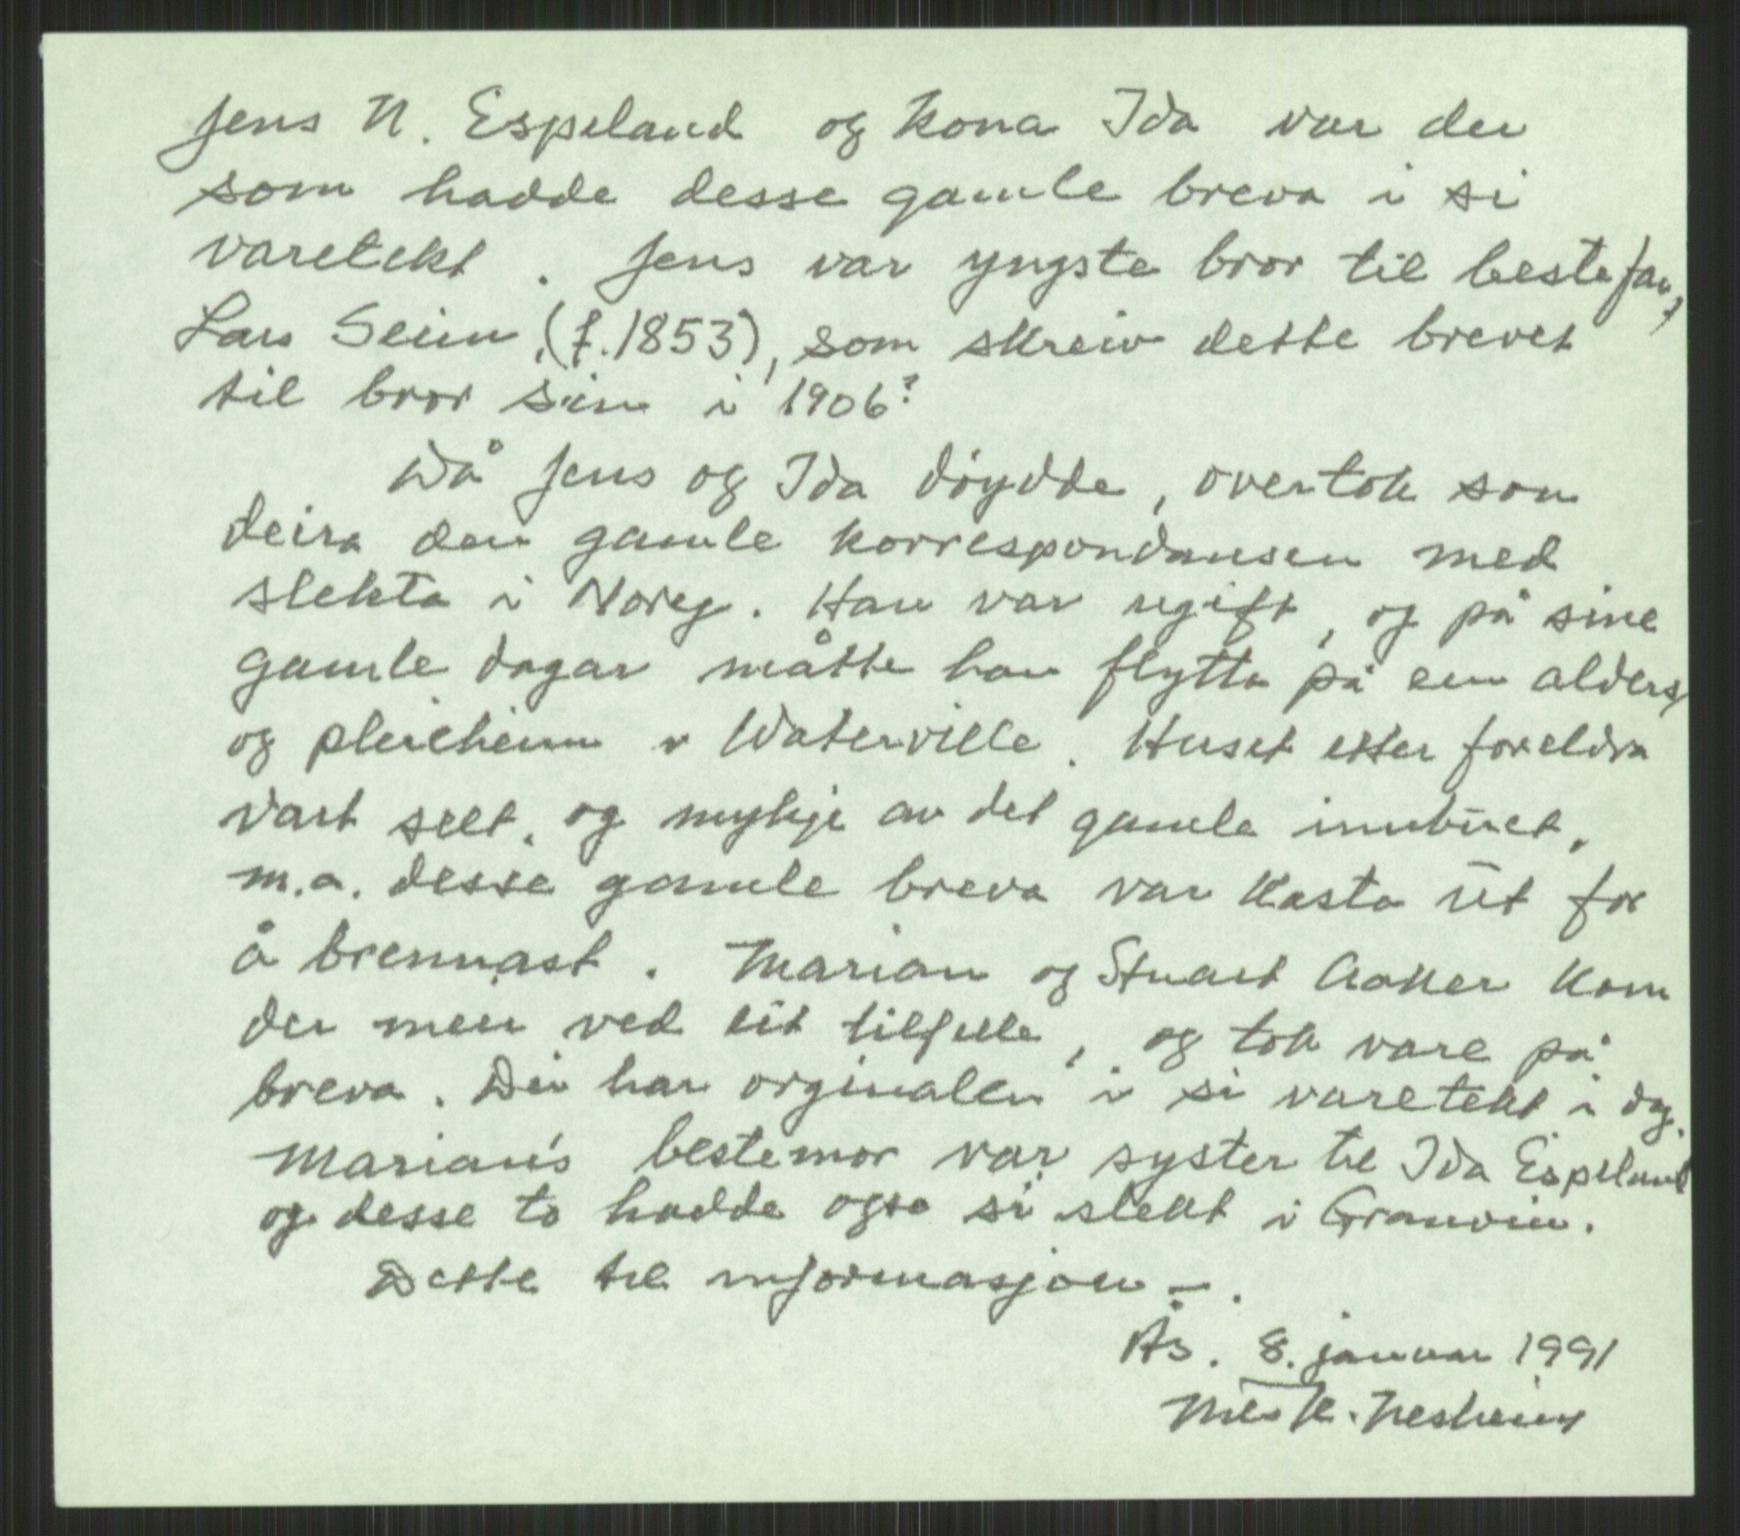 Jens N. Espeland og kona Ida var dei
som hadde desse gamle breva i si
varetekt. Jens var yngste bror til bestefar,
Lars Seim, (f. 1853), som skreiv dette brevet
til bror sin i 1906?
Då Jens og Ida døydde, overtok son
deira den gamle korrespondansen med
slekta i Noreg. Han var ugift, og på sine
gamle dagar måtte han flytta på ein alders
og pleieheim i Waterville. Huset etter foreldra
vart selt, og mykje av det gamle innbuet,
m.a. desse gamle breva var kasta ut for
å brennast. Marian og Stuart Aaker kom
der meir ved eit tilfelle, og tok vare på
breva. Dei har orginalen i si varetekt i dag.
Marian's bestemor var syster til Ida Espeland
og desse to hadde også si slekt i Granvin.
Dette til informasjon –.
Ås. 8. januar 1991
Nesheim